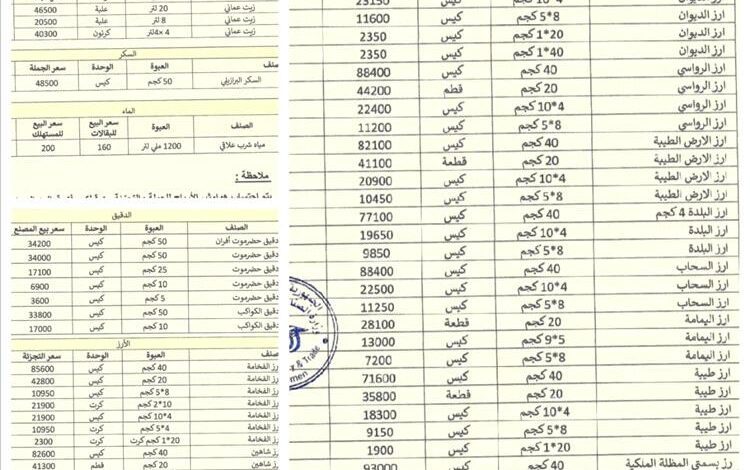 23150 كيس 4*10 كجم
ارز الديوان 5*8 كجم كيس 11600
ارز الديوان 20*1 كجم كيس 2350
ارز الديوان 40*1 كجم كيس 2350
ارز الرواسي 40 كجم كيس 88400
ارز الرواسي 20 كجم قطم 44200
ارز الرواسي 4*10 كجم كيس 22400
ارز الرواسي 5*8 كجم كيس 11200
ارز الارض الطيبة 40 كجم كيس 82100
ارز الارض الطيبة 20 كجم قطعة 41100
ارز الارض الطيبة 4*10 كجم كيس 20900
ارز الارض الطيبة 5*8 كجم كيس 10450
ارز البلدة 4 كجم 40 كجم كيس 77100
ارز البلدة 4*10 كجم كيس 19650
ارز البلدة 5*8 كجم كيس 9850
ارز السحاب 40 كجم كيس 88400
ارز السحاب 4*10 كجم كيس 22500
ارز السحاب 5*8 كجم كيس 11250
ارز اليمامة 20 كجم قطعة 28100
ارز اليمامة 5*9 كجم كيس 13000
ارز اليمامة 5*8 كجم كيس 7200
ارز طيبة 40 كجم كيس 71600
ارز طيبة 20 كجم قطعة 35800
ارز طيبة 4*10 كجم كيس 18300
ارز طيبة 5*8 كجم كيس 9150
ارز طيبة 20*1 كجم كيس 1900
رز بسمتي المظلة الملكية 40 كجم كيس 93000
زيت عماني 20 لتر علبة 46500
زيت عماني 8 لتر علبة 20500
زيت عماني 4*4 لتر كرتون 40300
السكر
صنف العبوة الوحدة سعر الجملة
السكر البرازيلي 50 كجم كيس 48500
الماء
الصنف العبوة سعر البيع للبقالات سعر البيع للمستهلك
مياه شرب علاقي 1200 ملي لتر 160 200
ملاحظة :
الدقيق
الصنف العبوة الوحدة سعر بيع المصنع
دقيق حضرموت أفران 50 كجم كيس 34200
دقيق حضرموت 50 كجم كيس 34000
دقيق حضرموت 25 كجم كيس 17100
دقيق حضرموت 10 كجم كيس 6900
دقيق حضرموت 5 كجم كيس 3600
دقيق الكواكب 50 كجم كيس 33800
دقيق الكوكب 10 كجم كيس 17000
الأرز
صنف العبوة الوحدة سعر التجزئة
رز الفخامة 40 كجم كيس 85600
رز الفخامة 20 كجم كيس 42800
رز الفخامة 5*8 كجم كيس 10950
رز الفخامة 10*2 كجم كرت 21900
رز الفخامة 4*10 كجم كيس 21900
رز الفخامة 4*5 كجم كرت 10950
رز الفخامة 20*1 كجم كرت كرت 2300
رز شاهين 40 كجم كيس 82600
رز شاهين 20 كجم قطم 41300